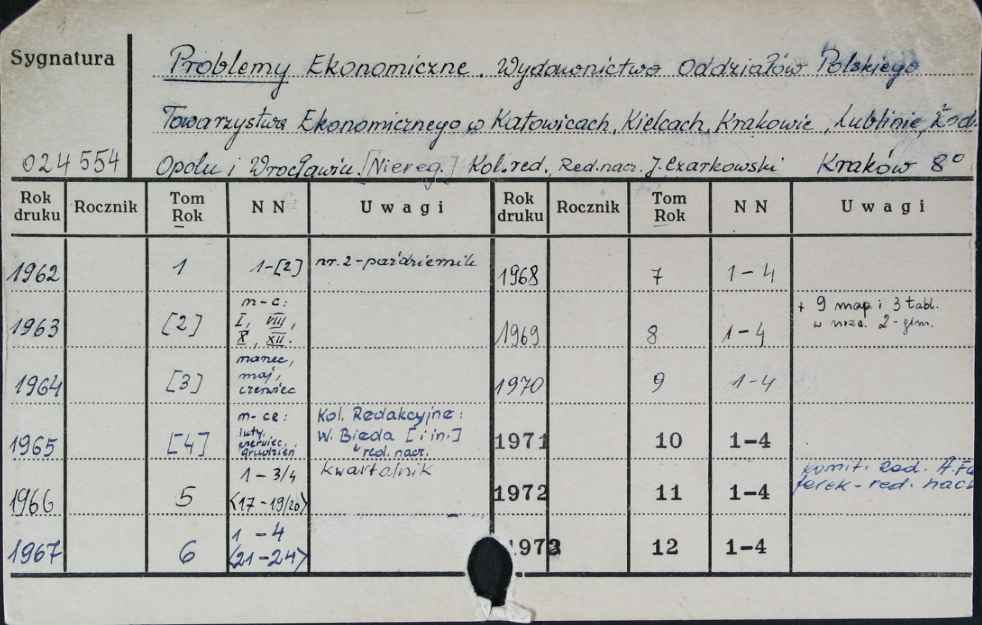 Sygnatura
Problemy Ekonomiczne. Wydawnictwo Oddziałów Polskiego
Towarzystwa Ekonomicznego w Katowicach, Kielcach, Krakowie, Lublinie, Łod
024554 Opolu i Wrocławiu. [Niereg.] Kol. red. Red. nacz. J. Czarkowski Kraków 8°
Rok druku Rocznik Tom Rok NN Uwagi Rok druku Rocznik Tom Rok NN Uwagi
1962 1 1-[2] nr. 2 - październik 1968 7 1-4
1963 [2] m-c: I, VIII, X, XII. 1969 8 1-4 + 9 map i 3 tabl. w nrze 2-gim.
1964 [3] marzec, maj, czerwiec 1970 9 1-4
1965 [4] m-ce: luty, czerwiec, grudzień Kol. Redakcyjne: W. Bieda [i in.] red. nacz. 1971 10 1-4
1966 5 1-3/4 <17-19/20> kwartalnik 1972 11 1-4 Komit. Red. red. nacz
1967 6 1-4 <21-24> 1973 12 1-4